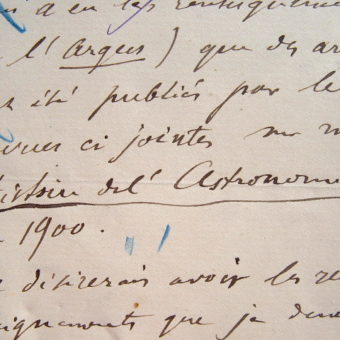 a eu les renseignemen
l'Argus) que des ar
été publiés par le
revues ci jointes sur m
histoire de l'Astronom
1900.
desirerais avoir les re
eignements que je dem